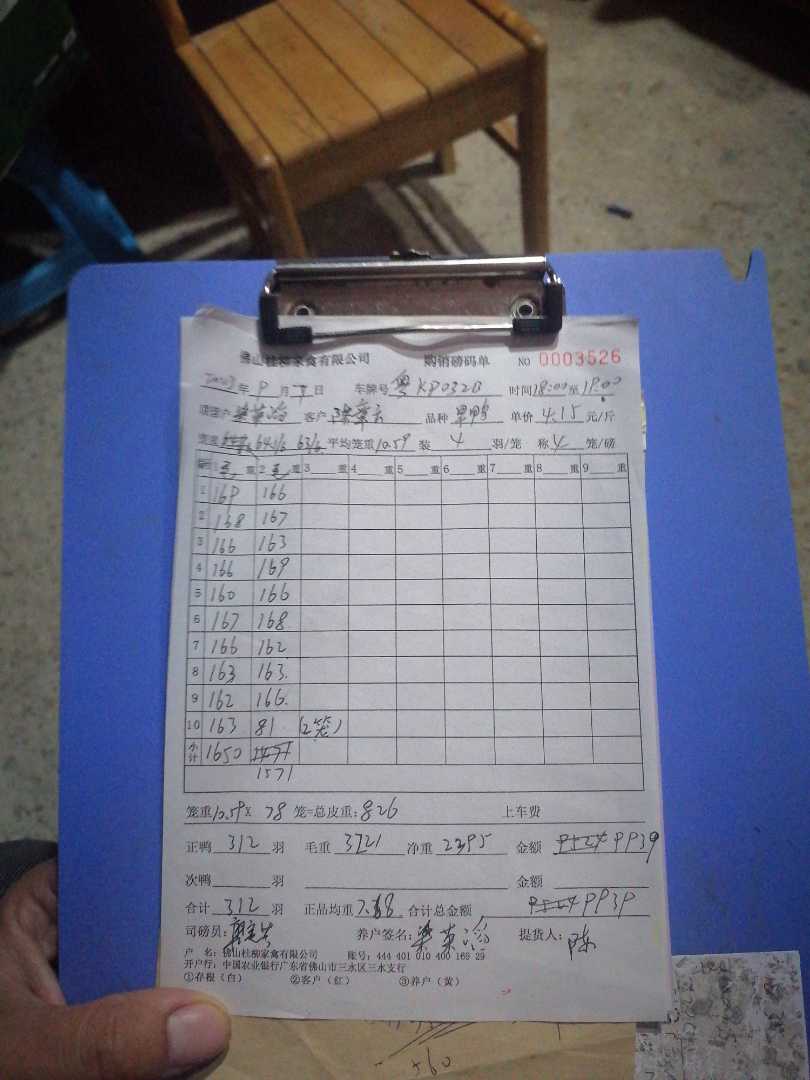 佛山桂柳家禽有限公司 购销磅码单 NO 0003526
2023年9月7日 车牌号 粤KP032B 时间18:00至19:00
客户 品种 旱鸭 单价 4.15 元/斤
64.1/6 63/6 平均笼重10.59 装 4 羽/笼 称 4 笼/磅
1 毛 重 2 毛 重 3 重 4 重 5 重 6 重 7 重 8 重 9 重
1 169 166
2 168 167
3 166 163
4 166 169
5 160 166
6 167 168
7 166 162
8 163 163.
9 162 166.
10 163 81. (2笼)
小计 1650
1571
笼重10.59X 78 笼=总皮重:826 上车费
正鸭 312 羽 毛重 3221 净重 2395 金额 9939
次鸭 羽 金额
合计 312 羽 正品均重 7.68 合计总金额 9939
司磅员: 养户签名: 梁英 提货人: 陈
户 名: 佛山桂柳家禽有限公司 账号: 444 401 010 400 169 29
开户行: 中国农业银行广东省佛山市三水区三水支行
①存根（白） ②客户（红） ③养户（黄）
+60